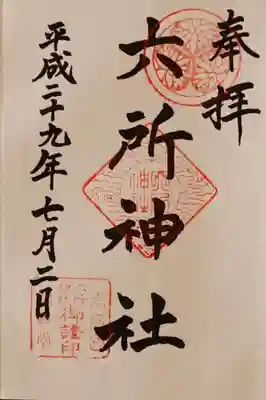 奉拝
六所神社
平成二十九年七月二日